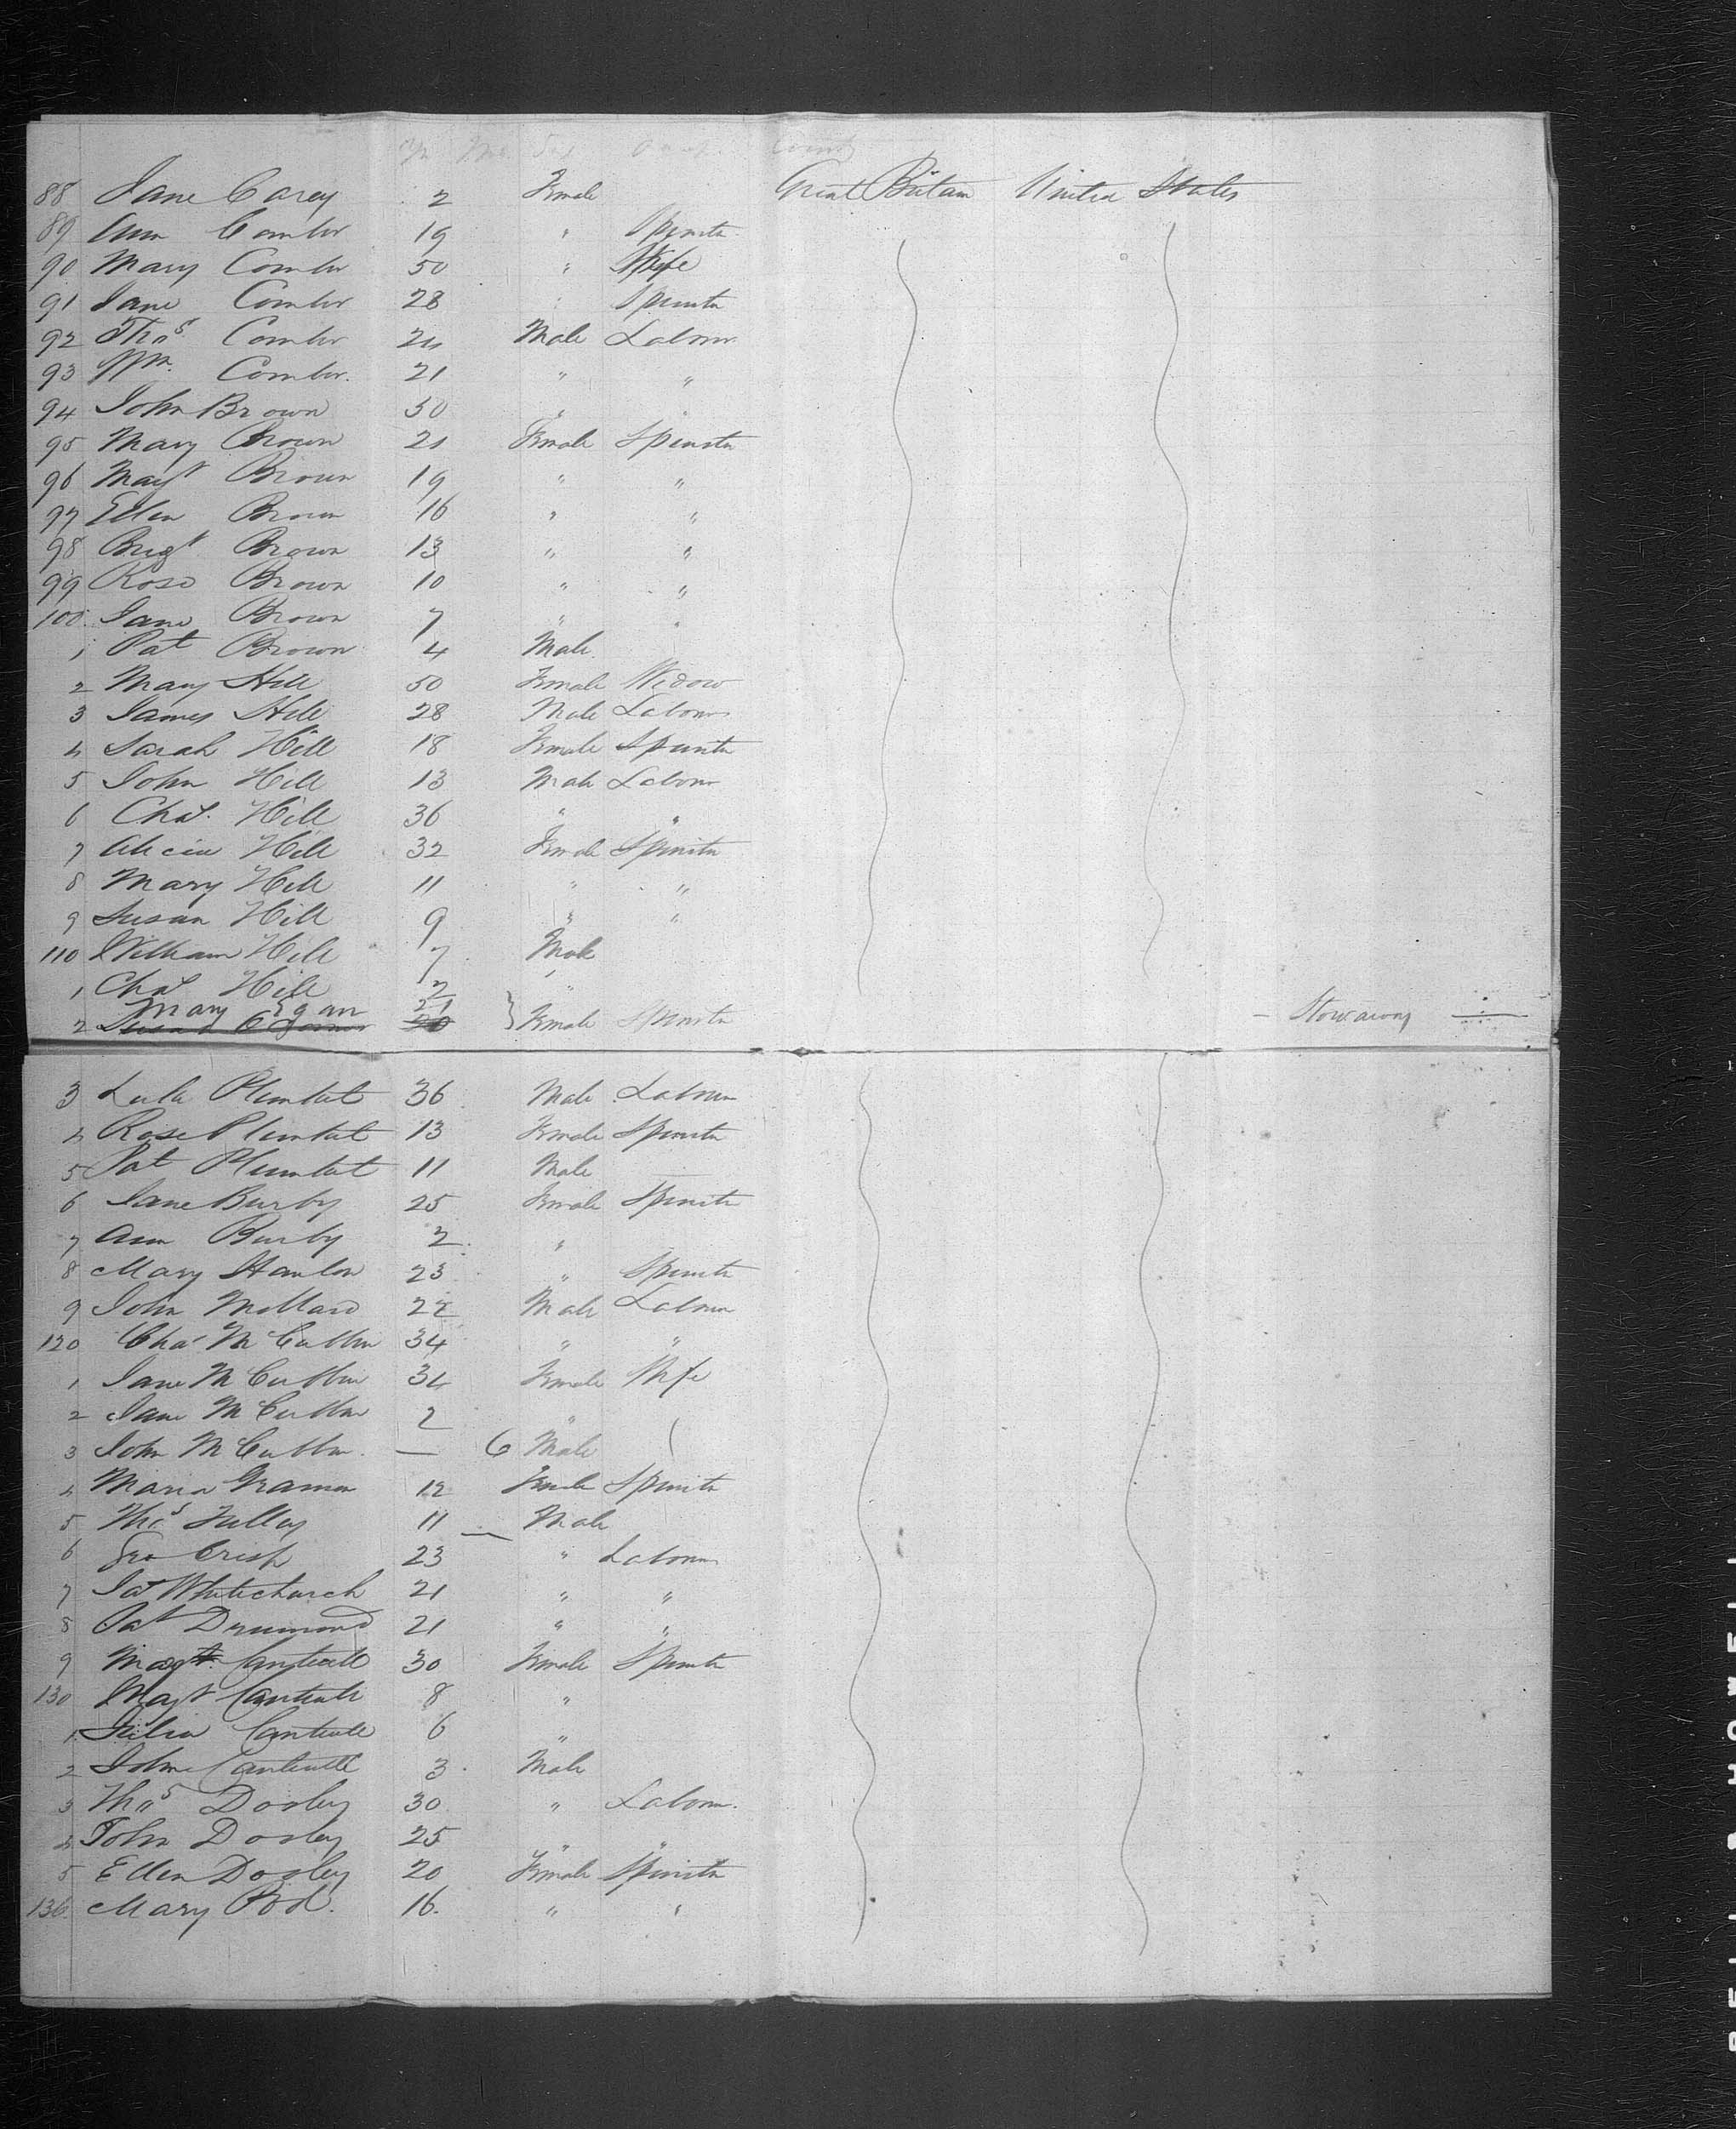 Yr Mo. Sex Occup. County
88 Jane Carey 2 Female Great Britain United States
89 Ann 19 " Spinster
90 Mary 50 " Wife
91 Jane 28 " Spinster
92 Thos 24 Male Labour
93 Wm. 21 " "
94 John Brown 50 " "
95 Mary Brown 21 Female Spinster
96 Magt Brown 19 " "
97 Ellen Brown 16 " "
98 Brigt Brown 13 " "
99 Rose Brown 10 " "
100 Jane Brown 7 " "
1 Pat Brown 4 Male
2 Mary Hill 50 Female Widow
3 James Hill 28 Male Labour
4 Sarah Hill 18 Female Spinster
5 John Hill 13 Male Labour
6 Chas. Hill 36 " "
7 Alicia Hill 32 Female Spinster
8 Mary Hill 11 " "
9 Susan Hill 9 " "
110 William Hill 7 Male
1 Chas Hill 2 "
Mary Egan 21
2 20 } Female Spinster — Stowaway —
3 36 Male Labour
4 Rose 13 Female Spinster
5 Pat 11 Male
6 Jane Burby 25 Female Spinster
7 Ann Burby 2 "
8 Mary Hanlon 23 " Spinster
9 John 22 Male Labour
120 Chas McCubbin 34 " "
1 Jane McCubbin 34 Female Wife
2 Jane McCubbin 2 "
3 John McCubbin — 6 Male
4 Maria 12 Female Spinster
5 Thos 11 — Male
6 Geo Crisp 23 " Labour
7 Whitechurch 21 " "
8 Pat Drummond 21 " "
9 Magt 30 Female Spinster
130 Magt 8 "
1 Julia 6 "
2 John 3 Male
3 Thos Dooley 30 " Labour
4 John Dooley 25 " "
5 Ellen Dooley 20 Female Spinster
136. Mary 16. " "